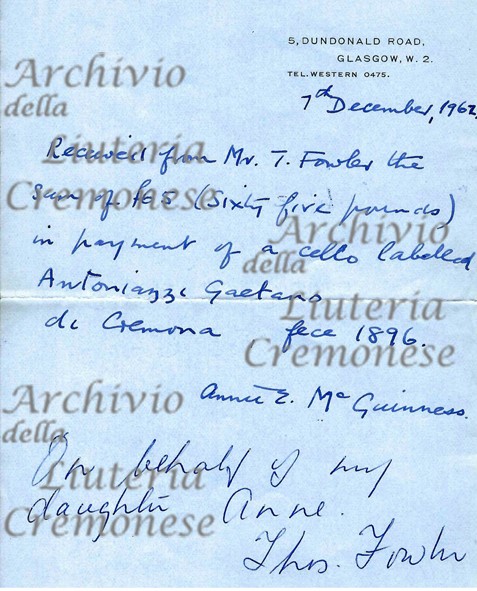 5, DUNDONALD ROAD,
GLASGOW, W. 2.
TEL. WESTERN 0475.
7th December, 1962.
Received from Mr. T. Fowler the
Sum of £65 (Sixty five pounds)
in payment of a cello labelled
Antoniazzi Gaetano
di Cremona fece 1896.
Annie E. McGuinness.
On behalf of my
daughter Anne.
Thos. Fowler
Archivio
della
Liuteria
Cremonese
Archivio
della
Liuteria
Cremonese
Archivio
della
Liuteria
Cremonese